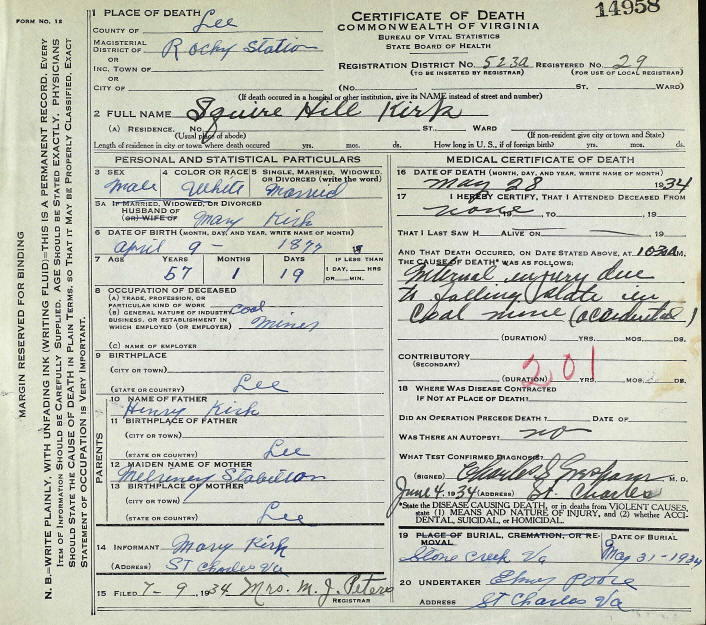 FORM NO. 12
MARGIN RESERVED FOR BINDING
N. B.—WRITE PLAINLY, WITH UNFADING INK (WRITING FLUID)—THIS IS A PERMANENT RECORD. EVERY
ITEM OF INFORMATION SHOULD BE CAREFULLY SUPPLIED. AGE SHOULD BE STATED EXACTLY. PHYSICIANS
SHOULD STATE THE CAUSE OF DEATH IN PLAIN TERMS, SO THAT IT MAY BE PROPERLY CLASSIFIED. EXACT
STATEMENT OF OCCUPATION IS VERY IMPORTANT.
14958
1 PLACE OF DEATH
COUNTY OF Lee
MAGISTERIAL
DISTRICT OF Rocky Station
OR
INC. TOWN OF
OR
CITY OF
CERTIFICATE OF DEATH
COMMONWEALTH OF VIRGINIA
BUREAU OF VITAL STATISTICS
STATE BOARD OF HEALTH
REGISTRATION DISTRICT NO. 523a REGISTERED NO. 29
(TO BE INSERTED BY REGISTRAR) (FOR USE OF LOCAL REGISTRAR)
(No. ST. WARD)
(If death occured in a hospital or other institution, give its NAME instead of street and number)
2 FULL NAME Squire Hill Kirk
(A) RESIDENCE. No. ST. WARD
(Usual place of abode) (If non-resident give city or town and State)
Length of residence in city or town where death occurred yrs. mos. ds. How long in U. S., if of foreign birth? yrs. mos. ds.
PERSONAL AND STATISTICAL PARTICULARS
3 SEX 4 COLOR OR RACE 5 SINGLE, MARRIED, WIDOWED, OR DIVORCED (write the word)
Male White Married
5A IF MARRIED, WIDOWED, OR DIVORCED
HUSBAND OF
(OR) WIFE OF Mary Kirk
6 DATE OF BIRTH (MONTH, DAY, AND YEAR, WRITE NAME OF MONTH)
April 9 - 1877
7 AGE YEARS MONTHS DAYS IF LESS THAN
1 DAY, HRS
OR MIN.
57 1 19
8 OCCUPATION OF DECEASED
(A) TRADE, PROFESSION, OR
PARTICULAR KIND OF WORK
(B) GENERAL NATURE OF INDUSTRY,
BUSINESS, OR ESTABLISHMENT IN
WHICH EMPLOYED (OR EMPLOYER)
Coal
Miner
(C) NAME OF EMPLOYER
9 BIRTHPLACE
(CITY OR TOWN)
(STATE OR COUNTRY) Lee
PARENTS
10 NAME OF FATHER
Henry Kirk
11 BIRTHPLACE OF FATHER
(CITY OR TOWN)
(STATE OR COUNTRY) Lee
12 MAIDEN NAME OF MOTHER
13 BIRTHPLACE OF MOTHER
(CITY OR TOWN)
(STATE OR COUNTRY) Lee
14 INFORMANT Mary Kirk
(ADDRESS) ST Charles Va
15 FILED 7-9, 1934 Mrs. M. J. Peters
REGISTRAR
MEDICAL CERTIFICATE OF DEATH
16 DATE OF DEATH (MONTH, DAY, AND YEAR, WRITE NAME OF MONTH)
May 28 1934
17 I HEREBY CERTIFY, THAT I ATTENDED DECEASED FROM
none 19 , TO , 19
THAT I LAST SAW H ALIVE ON , 19
AND THAT DEATH OCCURED, ON DATE STATED ABOVE, AT 1030A M.
THE CAUSE OF DEATH* WAS AS FOLLOWS:
Internal injury due
to falling slate in
Coal mine (accidental)
(DURATION) YRS. MOS. DS.
CONTRIBUTORY
(SECONDARY)
201
(DURATION) YRS. MOS. DS.
18 WHERE WAS DISEASE CONTRACTED
IF NOT AT PLACE OF DEATH?
DID AN OPERATION PRECEDE DEATH? DATE OF
WAS THERE AN AUTOPSY? no
WHAT TEST CONFIRMED DIAGNOSIS?
(SIGNED) Charles M. D.
June 4, 1934 (ADDRESS) St. Charles
*State the DISEASE CAUSING DEATH, or in deaths from VIOLENT CAUSES,
state (1) MEANS AND NATURE OF INJURY, and (2) whether ACCI-
DENTAL, SUICIDAL, or HOMICIDAL.
19 PLACE OF BURIAL, CREMATION, OR RE-
MOVAL DATE OF BURIAL
Stone Creek Va May 31-1934
20 UNDERTAKER
ADDRESS St Charles Va